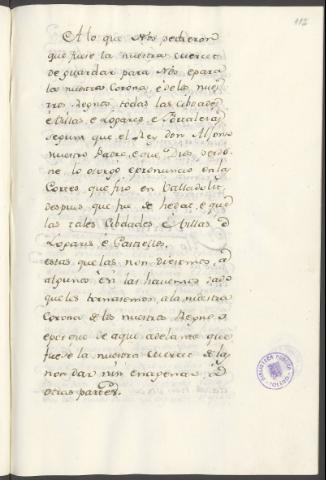 112
A lo que Nos pedieron
que fuese la nuestra merced
de guardar para Nos, e para
la nuestra Corona, e de los nues
tros Regnos todas las Cibdades
é Villas, e Logares, e Fortalezas
segunt que el Rey don Alfonso
nuestro Padre, e que Dios perdo
ne lo otorgó e prometió en las
Cortes, que fizo en Valladolid,
despues que fue de hedat, e que
las tales Cibdades, é Villas e
Logares, e Castiellos,
estas que las non diesemos a
algunos e si las habemos dado
que los tornasemos a la nuestra
Corona de los nuestros Regnos,
e por que de aqui adelante que
fuese la nuestra merced de las
non dar nin enagenar a
otras partes.
BIBLIOTECA PUBLICA
TOLEDO